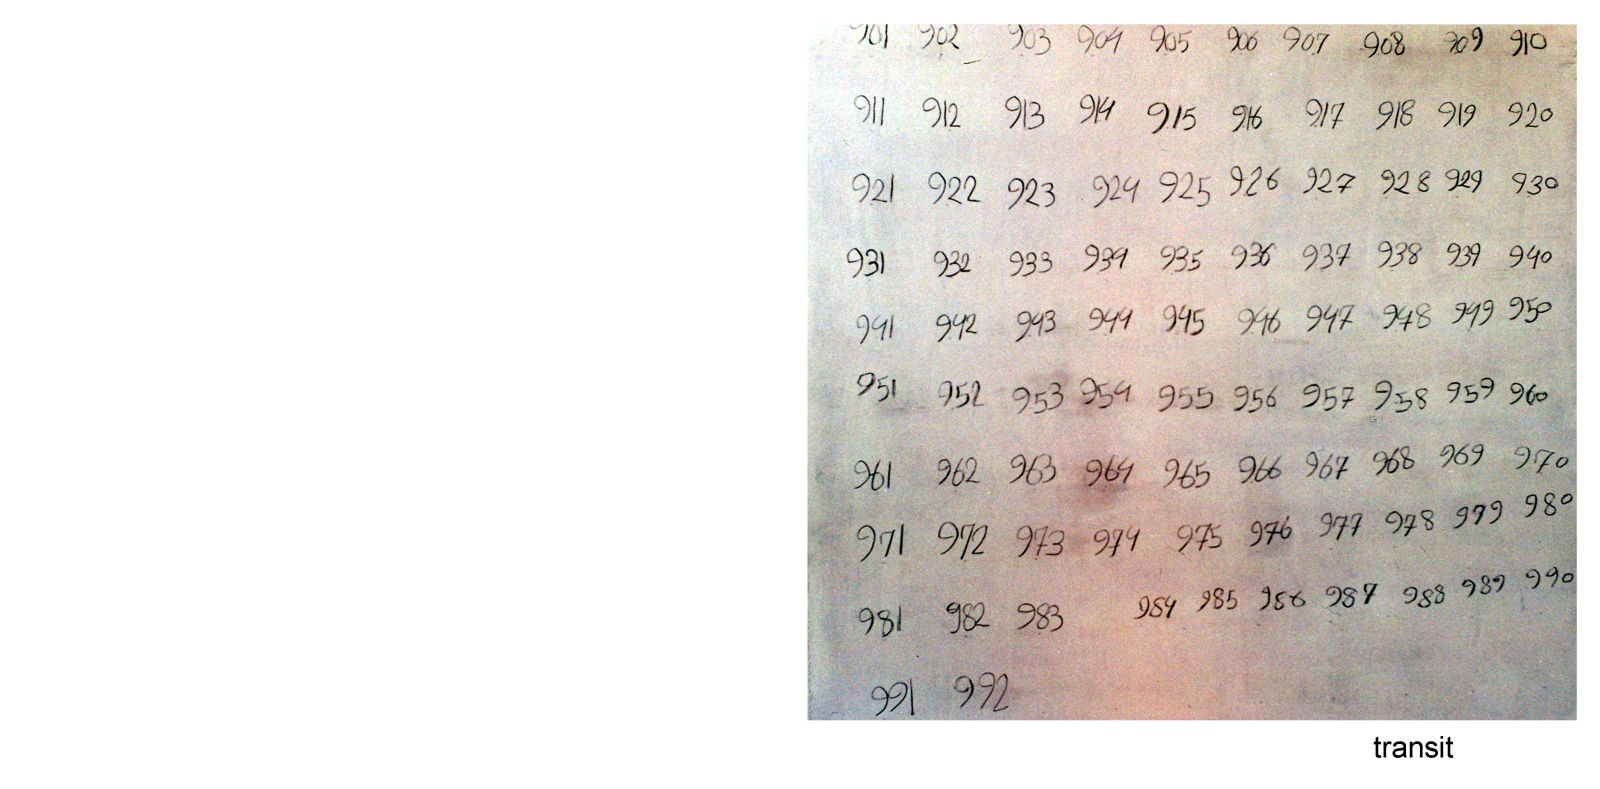 901 902 903 904 905 906 907 908 909 910
911 912 913 914 915 916 917 918 919 920
921 922 923 924 925 926 927 928 929 930
931 932 933 934 935 936 937 938 939 940
941 942 943 944 945 946 947 948 949 950
951 952 953 954 955 956 957 958 959 960
961 962 963 964 965 966 967 968 969 970
971 972 973 974 975 976 977 978 979 980
981 982 983 984 985 986 987 988 989 990
991 992
transit